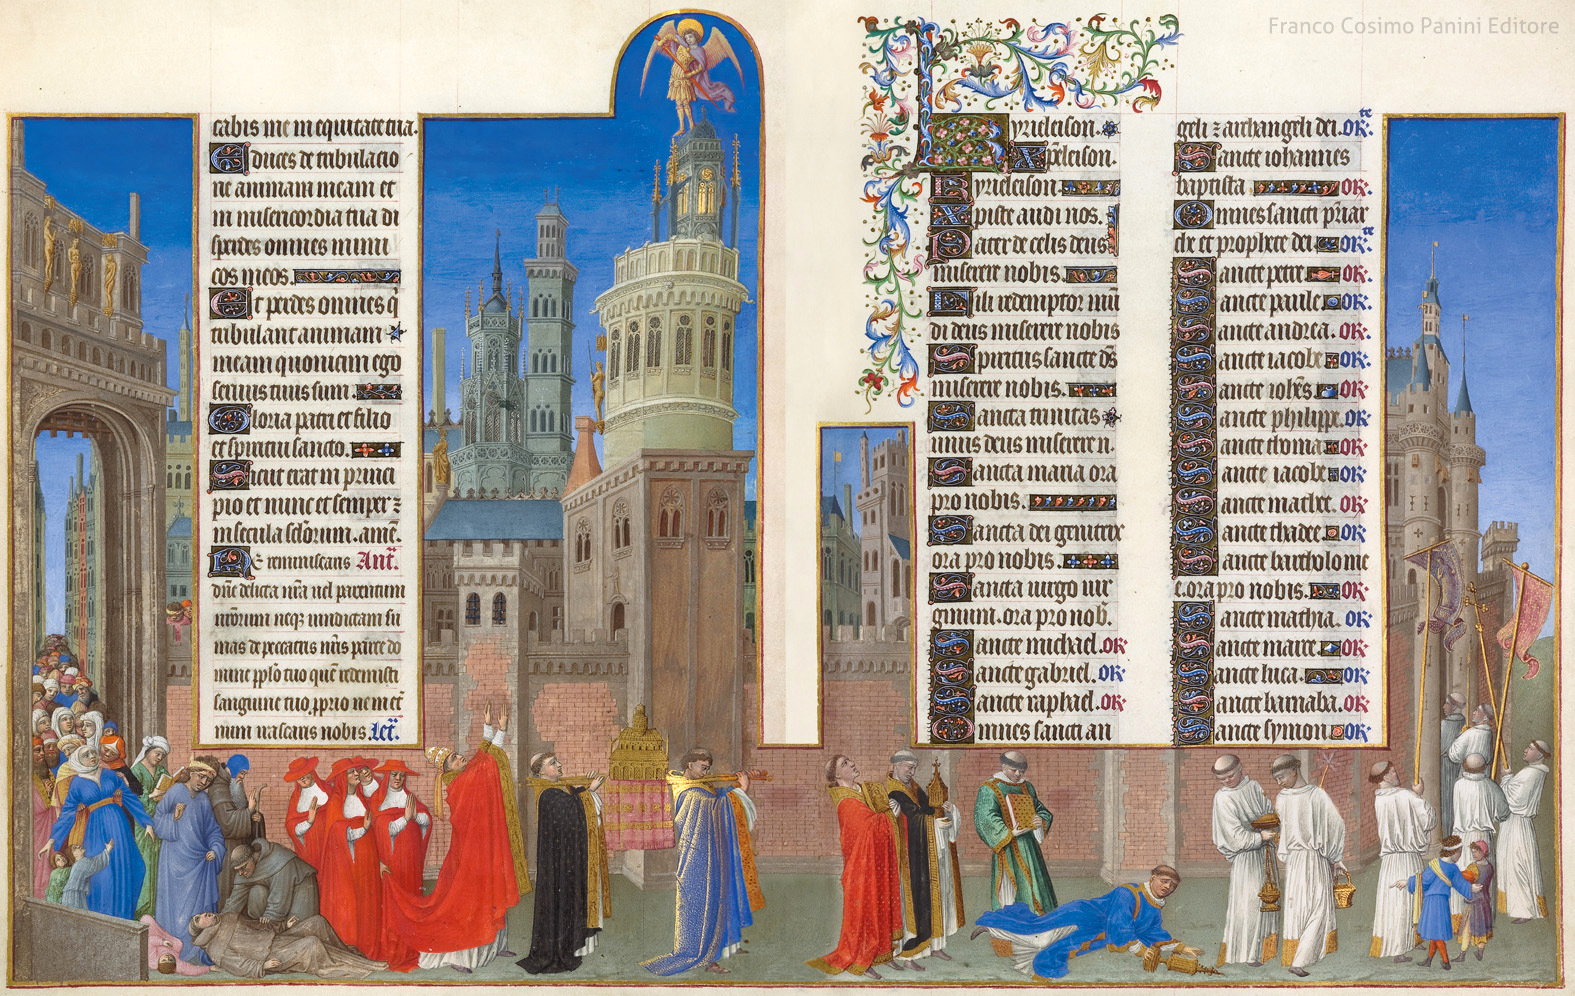 Franco Cosimo Panini Editore
cabis me in equitate tua.
Educes de tribulacio
ne animam meam et
in misericordia tua di
sperdes omnes inimi
cos meos.
Et perdes omnes q
tribulant animam
meam quoniam ego
seruus tuus sum.
Gloria patri et filio
et spiritui sancto.
Sicut erat in princi
pio et nunc et semper z
in secula sclorum. ame.
Ne reminiscaris Ant.
dne delicta nra uel parentum
nrorum neqz uindictam su
mas de peccatis nris parce do
mine pplo tuo que redemisti
sanguine tuo pprio ne in et
num irascaris nobis. Let.
Kyrieleison.
Xpeleison.
Kyrieleison.
Xpiste audi nos.
Pater de celis deus
miserere nobis.
Fili redemptor mu
di deus miserere nobis
Spiritus sancte ds
miserere nobis.
Sancta trinitas
unus deus miserere n
Sancta maria ora
pro nobis.
Sancta dei genitrix
ora pro nobis.
Sancta uirgo uir
ginum. ora pro nob.
Sancte michael. or
Sancte gabriel. or
Sancte raphael. or
Omnes sancti an
geli z archangeli dei. orte
Sancte iohannes
baptista or.
Omnes sancti priar
che et prophete dei orte
Sancte petre or.
Sancte paule or.
Sancte andrea. or.
Sancte iacobe or.
Sancte iohes or.
Sancte philippe. or
Sancte thoma or.
Sancte iacobe or.
Sancte mathee. or
Sancte thadee. or
Sancte bartholome
e. ora pro nobis. or
Sancte mathia. or
Sancte marce. or.
Sancte luca. or
Sancte barnaba. or
Sancte symon. or